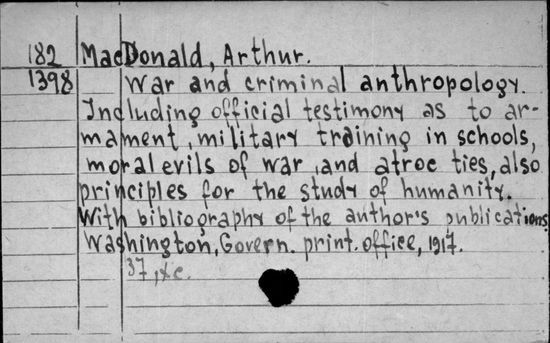 182 MacDonald, Arthur.
1398 War and criminal anthropology.
Including official testimony as to ar-
mament, military training in schools,
moral evils of war, and atroc ties, also
principles for the study of humanity.
With bibliography of the author's publications
Washington, Govern. print. office, 1917.
37, &c.